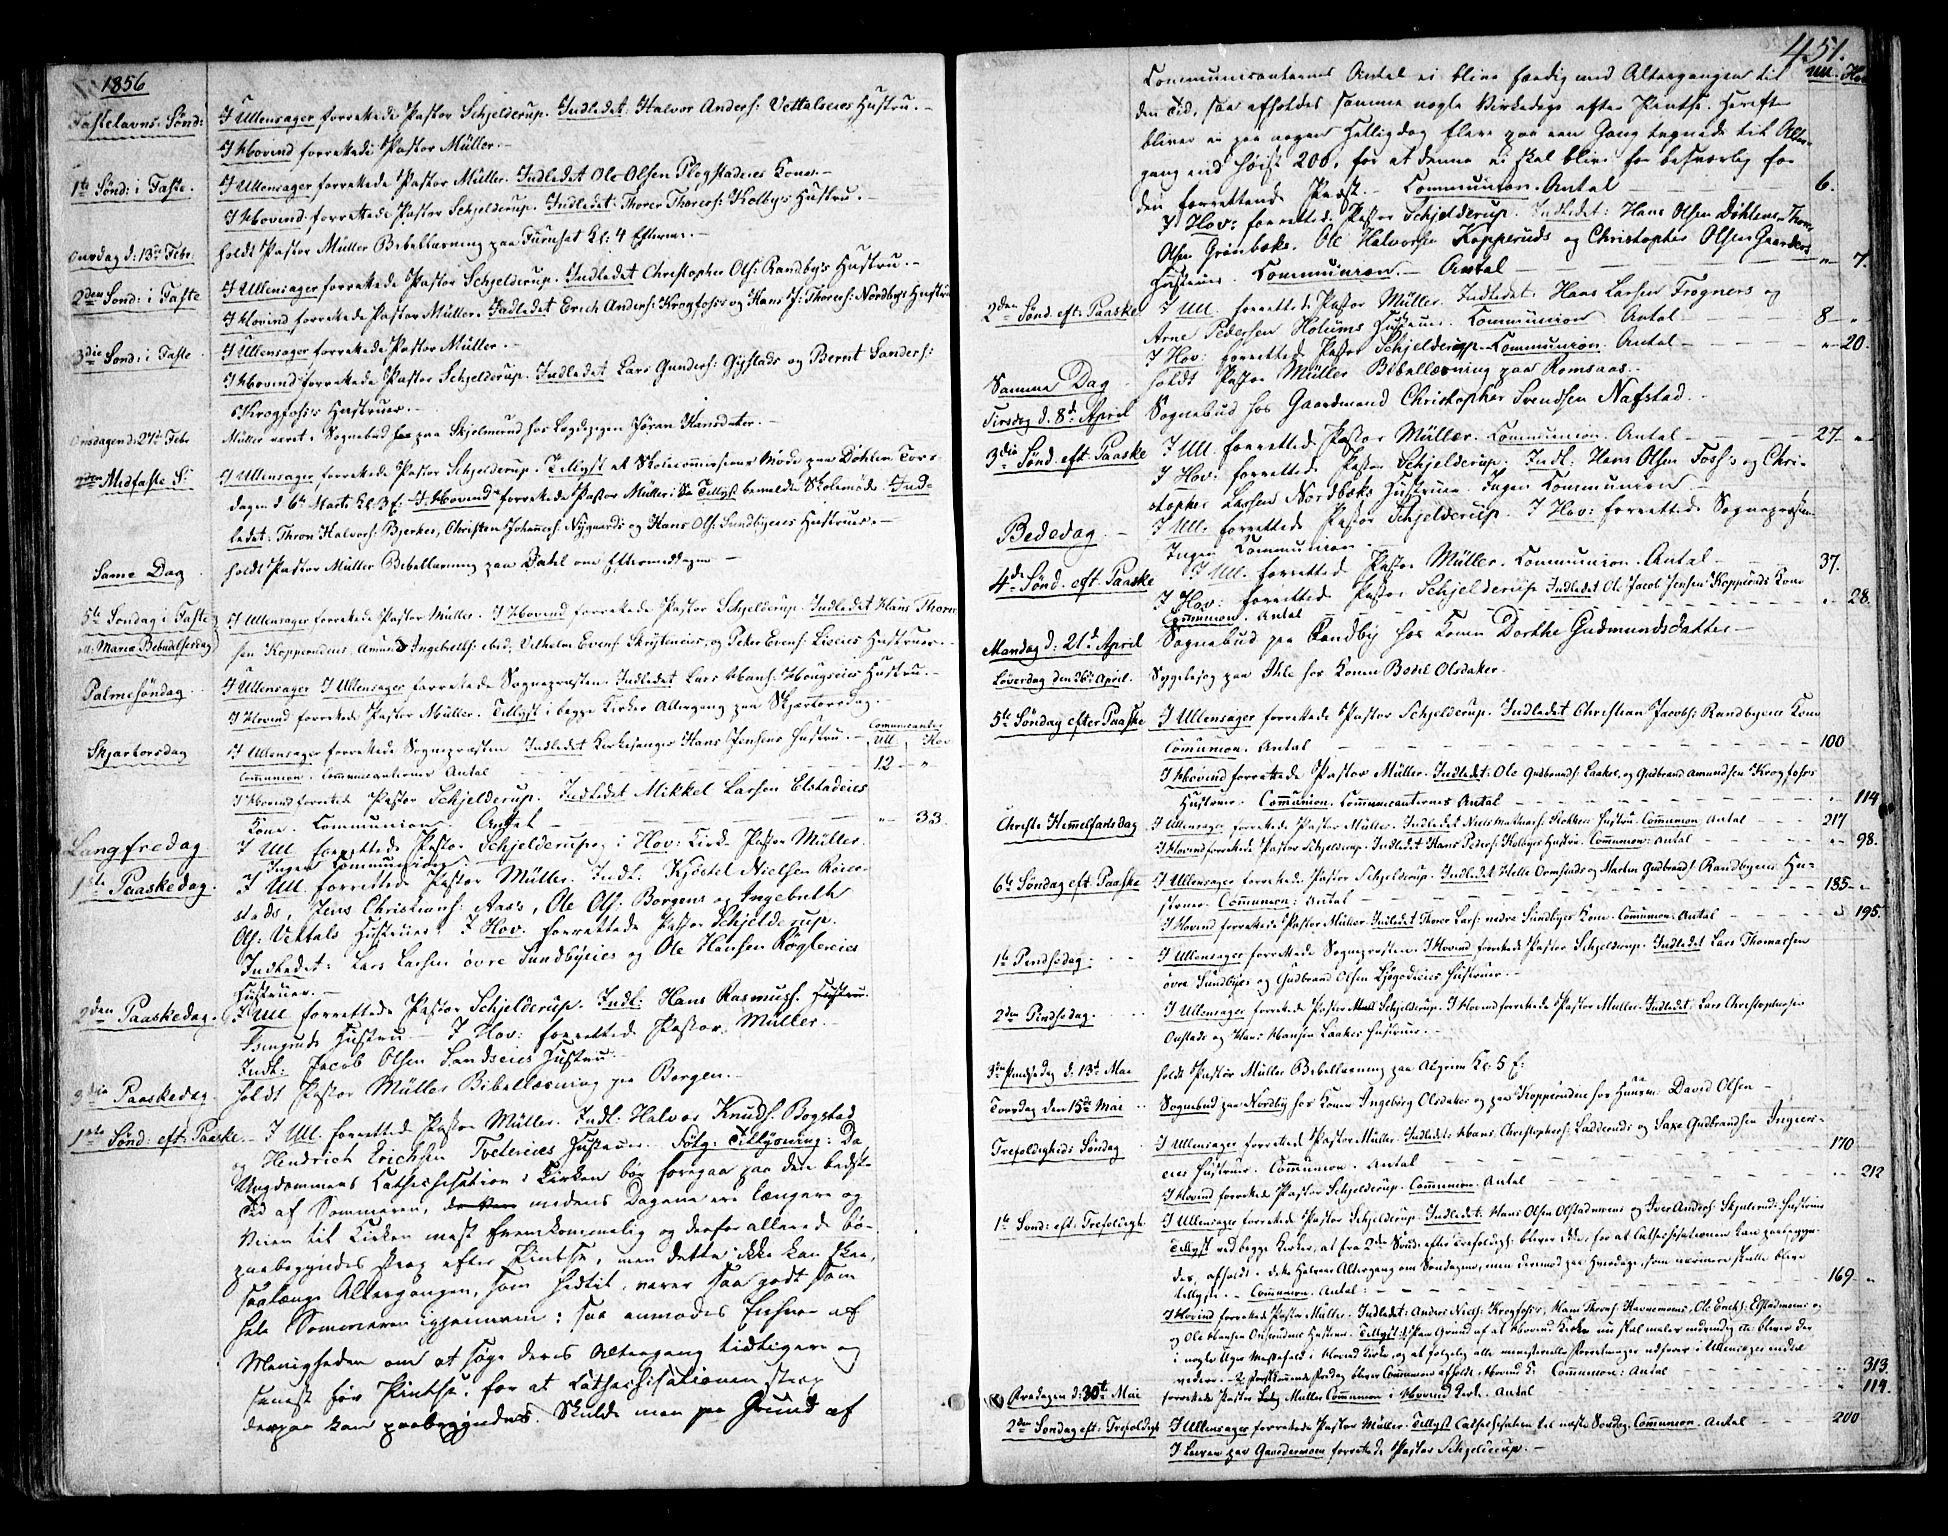 1856
Fastelavns-Sønd: I Ullensager forrettede Pastor Schjelderup. Indledet: Halvor Anders: Vettaleies Hustru.-
I Hovind forrettede Pastor Müller.-
1ste Sønd: i Faste. I Ullensager forrettede Pastor Müller. Indledet Ole Olsen Plogstadeies Kone.-
I Hovind forrettede Pastor Schjelderup. Indledet: Thorer Thorers: Kolbys Hustru.-
Onsdag d: 13de Febr. holdt Pastor Müller Bibellæsning paa Furuset Kl: 4 Efterm:-
2den Sønd: i Faste I Ullensager forrettede Pastor Schjelderup. Indledet Christopher Ols: Randbys Hustru.-
I Hovind forrettede Pastor Müller. Indledet Erich Anders: Krogfoss og Hans J: Thores: Nordbys Hustru
3die Sønd: i Faste I Ullensager forrettede Pastor Müller.-
I Hovind forrettede Pastor Schjelderup. Indledet Lars Gunders: Gystads og Bernt Sanders:
Krogfoss Hustruer.-
Onsdagen d: 27de Febr Müller været i Sognebud paa Skjelmerud hos Lægdspigen Jøran Hansdatter.-
Midfaste S: I Ullensager forrettede Pastor Schjelderup. Tillyst et Skolecommissions Møde paa Døhlen Tors-
dagen d 6te Marts Kl. 3 E: I Hovind forrettede Pastor Müller: Tillyst bemeldte Skolemøde. Ind-
ledet: Thron Halvors: Bjerkes, Christen Johannes: Nygaards og Hans Ols: Sundbyeies Hustruer.-
Same Dag holdt Pastor Müller Bibellæsning paa Dahl om Eftermiddagen-
5te Søndag i Faste I Ullensager forrettede Pastor Müller. I Hovind forrettede Pastor Schjelderup. Indledet Hans Thorer
ell. Maria Bebudelsesdag sen Kopperudeies, Amund Ingebrets: ibid, Vilhelm Evens: Skrytneies, og Peter Evens: Lieies Hustruer.-
Palmesøndag I Ullensager I Ullensager forrettede Sognepræsten. Indledet Lars Hans: Haugseies Hustru.-
I Hovind forrettede Pastor Müller. Tillyst i begge Kirker Altergang paa Skjærtorsdag.-
Communicanter
Ull. Hov
Skjærtorsdag I Ullensager forrettede Sognepræsten Indledet Kirkesanger Hans Jensens Hustru.-
Communion. Communicanternes Antal 12 - "
I Hovind forrettede Pastor Schjelderup. Indledet Mikkel Larsen Elstadeies
Kone. Communion. Antal " 33
Langfredag I Ull forrettede Pastor Schjelderup og i Hov: Kirke Pastor Müller.
Ingen Communion
1ste Paaskedag. I Ull. forrettede Pastor Müller. Indl: Kjøstel Nielsen Risen-
stads, Jens Christians: Aas's, Ole Ols: Borgens og Ingebrikt
Ols: Vettals Hustruer. I Hov. forrettede Pastor Schjelderup.
Indledet: Lars Larsen øvre Sundbyeies og Ole Hansen Røgleeies
Hustruer.-
2den Paaskedag. I Ull forrettede Pastor Schjelderup. Indl: Hans Rasmuss. Hustru.
Hustru.- I Hov: forrettede Pastor Müller.-
Indl: Jacob Olsen Sandseies Hustru.
3die Paaskedag. holdt Pastor Müller Bibellæsning paa Borgen.-
1ste Sønd: eft: Paaske. I Ull. forrettede Pastor Müller. Indl: Halvor Knuds: Bogstad
og Hendrich Erichsen Tveteeies Hustruer. Følg: Tillysning: Da
Ungdommens Cathechisation i Kirken bør foregaa paa den bedste
Tid af Sommeren, medens Dagene ere længere og
Veien til Kirken mest fremkommelig og derfor allerede bø-
paabegyndes strax efter Pintse, men dette ikke kan skee,
saalænge Altergangen, som hidtil, varer saa godt som
hele Sommeren igjennem: saa anmodes Enhver af
Menigheden om at søge deres Altergang tidligere og
senest før Pintse, for at Cathechisationen strax
derpaa kan paabegyndes. Skulde man paa Grund af
451.
Ull. Hov
Communicanternes Antal ei blive færdig med Altergangen til
den Tid, saa afholdes samme nogle Virkedage efter Pintse. Herefter
bliver ei paa nogen Helligdag flere paa een Gang tegnede til Alter-
gang end høist 200, for at denne ei skal blive for besværlig for
den forrettende Præst.- Communion. Antal 6.
I Hov: forrettede Pastor Schjelderup. Indledet: Hans Olsen Døhlens, Thorer
Olsen Grønbæks. Ole Halvorsen Kopperuds og Christopher Olsen Gaarders
Hustruer. Communion.- Antal " 7.
2den Sønd. eft: Paaske I Ull. forrettede Pastor Müller. Indledet: Hans Larsen Trøgners og
Arne Pedersen Holums Hustruer. Communion Antal 8 "
I Hov: forrettede Pastor Schjelderup. Communion. Antal " 20.
Samme Dag holdt Pastor Müller Bibellæsning paa Romsaas.-
Tirsdag d. 8de April Sognebud hos Gaardmand Christopher Svendsen Nafstad.
3die Sønd. eft: Paaske I Ull. forrettede Pastor Müller. Communion. Antal 27. "
I Hov. forrettede Pastor Schjelderup. Indl: Hans Olsen Foss's og Chri-
stopher Larsen Nordbæks Hustruer. Ingen Communion
Bededag. I Ull. forrettede Pastor Schjelderup. I Hov: forrettede Sognepræsten
Ingen Communion.
4de Sønd. eft. Paaske I Ull. forrettede Pastor Müller. Communion. Antal 37.
I Hov: forrettede Pastor Schjelderup Indledet Ole Jacob Jensen Kopperuds Kone
Communion. Antal " 28.
Mandag d: 21de April Sognebud paa Randby hos Konen Dorthe Gudmundsdatter-
Løverdag den 26de April. Sygebesøg paa Ihle hos Konen Bodel Olsdatter.
5te Søndag efter Paaske I Ullensager forrettede Pastor Schjelderup. Indledet Christian Jacobs: Randbyeies Kone
Communion. Antal 100
I Hovind forrettede Pastor Müller. Indledet: Ole Gudbrands: Laakes, og Gudbrand Amundsen Krogfoss
Hustruer. Communion. Communicanternes Antal " 114
Christi Himmelfartsdag I Ullensager forrettede Pastor Müller. Indledet Niels Mathias: Hustru. Communion Antal 217
I Hovind forrettede Pastor Schjelderup. Indledet Hans Peders: Kolbyes Hustru. Communion: Antal " 98.
6te Søndag eft: Paaske I Ullensager forrettede Pastor Schjelderup. Indledet Helle Ormstads og Morten Gudbrands: Randbyeies Hu-
struer. Communion: Antal 185 "
I Hovind forrettede Pastor Müller. Indledet Thorer Lars: nedre Sundbyes Kone. Communion: Antal " 195.
1ste Pindsedag. I Ullensager forrettede Sognepræsten. I Hovind forrettede Pastor Schjelderup. Indledet Lars Thomassen
øvre Sundbyes og Gudbrand Olsen Ljøgodteies Hustruer.-
2den Pindsedag. I Ullensager forrettede Pastor Schjelderup. I Hovind forrettede Pastor Müller. Indledet: Lars Christophersen
Onstads og Hans Hansen Laakes Hustruer.-
3die Pindsedag d: 13de Mai holdt Pastor Müller Bibellæsning paa Algrim Kl: 5 E:
Torsdag den 15de Mai Sognebud paa Nordby hos Konen Ingeborg Olsdatter og paa Kopperudeie hos Husm: David Olsen-
Trefoldigheds Søndag I Ullensager forrettede Pastor Müller. Indledet: Hans Christophers: Ladderuds og Saxe Gudbrandsen Ingier-
eies Hustruer. Communion. Antal 170
I Hovind forrettede Pastor Schjelderup. Communion. Antal 212
1ste Sønd: eft: Trefoldigh: I Ullensager forrettede Pastor Schjelderup. Indledet: Hans Olsen Olstadmoens og Iver Anders: Skjulerud: Hustruer
Tillyst ved begge Kirker, at fra 2den Sønd: efter Trefoldigh: bliver ikke, for at Cathechisationen kan paabegyn-
des, afholdt dette Halvaar Altergang om Søndagene, men derimod paa Hverdage, som nærmere skulle blive
tillyste.- Communion. Antal: 169 "
I Hovind forrettede Pastor Müller. Indledet: Anders Niels: Krogfoss's, Hans Throns: Havnemoens, Ole Erichs: Elstadmoens og
og Ole Hansen Hustruer. Tillyst: Paa Grund af at Hovind Kirke nu skal males indvendig etc bliver der
i nogle Uger Messefald i Hovind Kirke, og at følgelig alle ministerielle Forretninger udføres i Ullensager indtil
videre.- Førstkommende Fredag bliver Communion afholdt i Hovind K: Communion: Antal " 313.
Fredagen d: 30te Mai forrettede Pastor Müller Communion i Hovind Kirke. Antal " 114.
2den Søndag eft: Trefoldigh I Ullensager forrettede Pastor Müller. Tillyst Cathechisation til næste Søndag. Communion. Antal 200
I Leiren paa Gardermoen forrettede Pastor Schjelderup.-